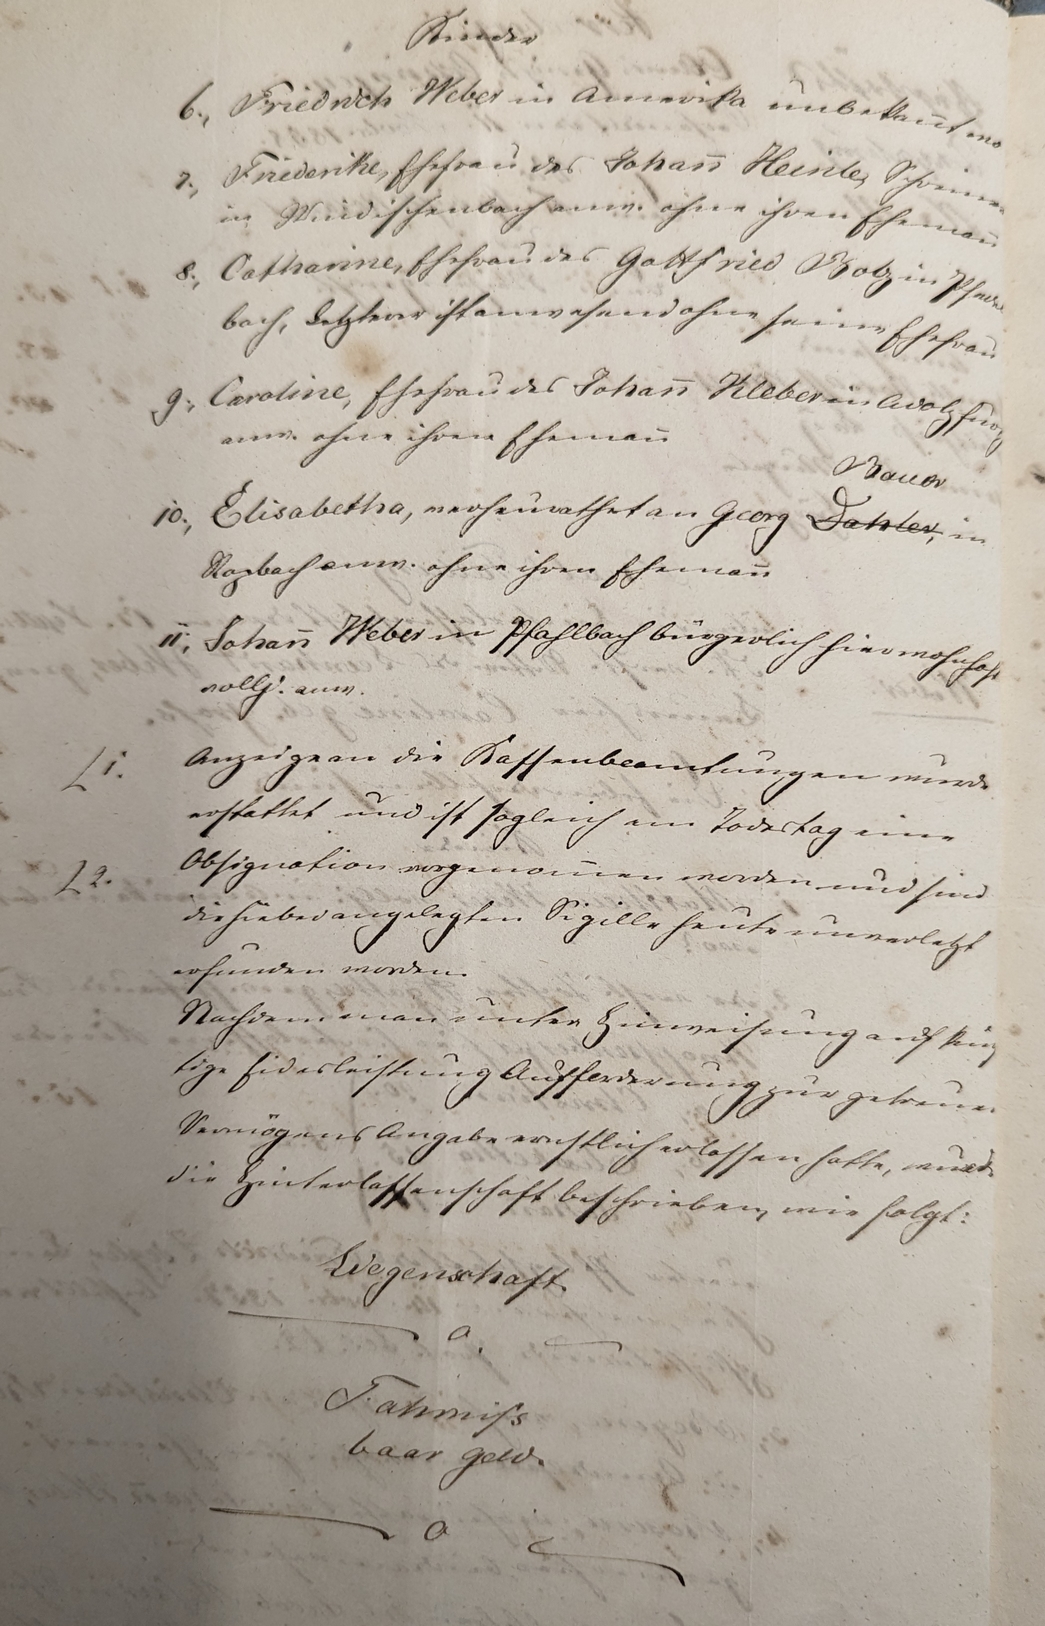 Kinder
6., Friedrich Weber in Amerika unbekant wo
7., Friederike, Ehefrau des Johañ Heinle, Schreiner
in Windischenbach anw. ohne ihren Ehemañ
8., Catharine, Ehefrau des Gottfried Botz in Pfedel
bach, Letzterer ist anwesend ohne seine Ehefrau
9., Caroline, Ehefrau des Johañ Kleber in Adolzfurt
anw. ohne ihren Ehemañ
Bauer
10., Elisabetha, verheurathet an Georg Dahler, in
anw. ohne ihren Ehemañ
11., Johañ Weber in Pfahlbach bürgerlich hier wohnhaft
vollj. anw.
L 1. Anzeige an die Kassenbeamtungen wurde
erstattet und ist sogleich am Todestag eine
L 2. Obsignation vorgenom̃en worden und sind
die hiebei angelegten Sigille heute unverletzt
erfunden worden.
Nachdem man unter Hinweisung auf künf
tige Eidesleistung Aufforderung zur getreuen
Vermögens Angabe ernstlich erlassen hatte, wurde
die Hinterlassenschaft beschrieben, wie folgt:
Liegenschaft.
0.
Fahrniss
baar Geld.
0